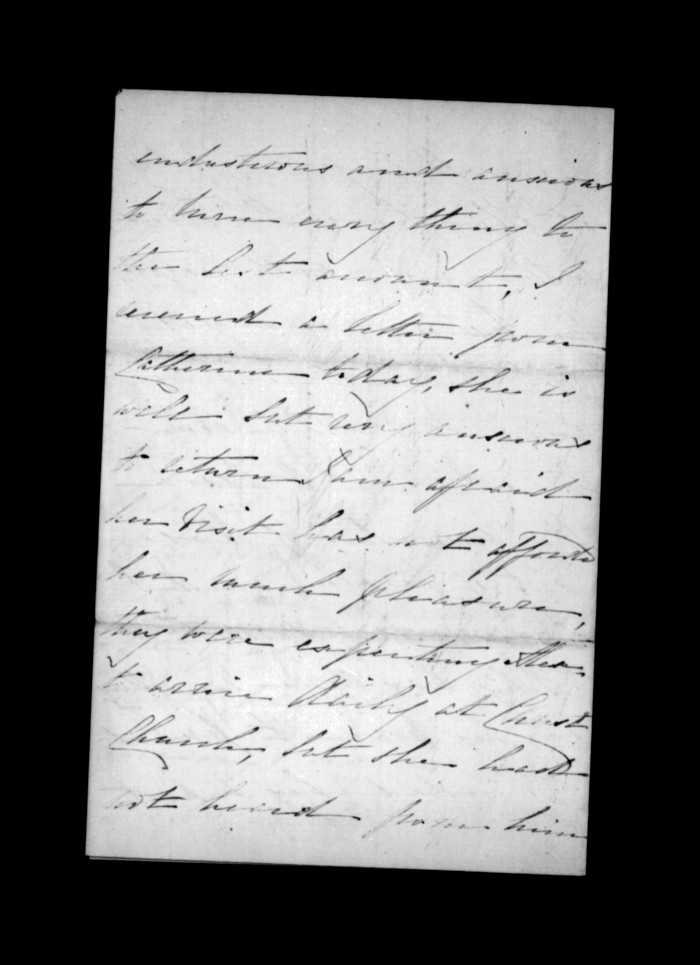 industrious and anxious
to turn every thing to
the best amount, I
received a letter from
Catherine today, she is
well but very anxious
to return I am afraid
her visit has not afforded
her much pleasure,
they were expecting Alex.
to arrive daily at Christ
Church, but she had
not heard from him